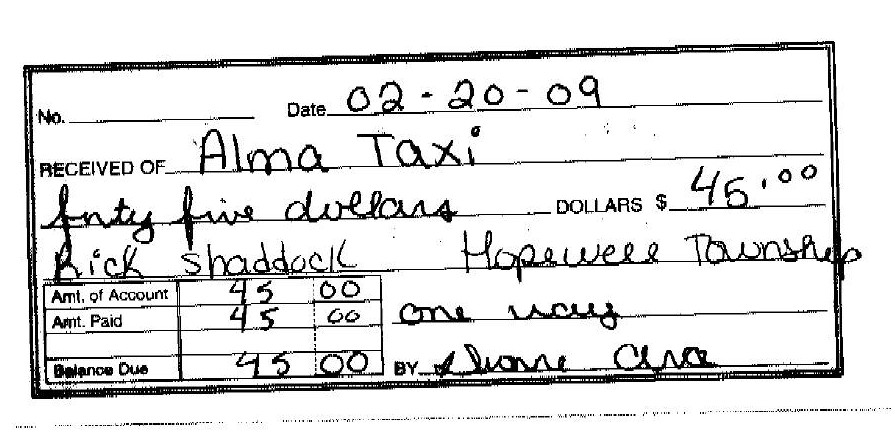 No. Date 02-20-09
RECEIVED OF Alma Taxi
forty five dollars DOLLARS $ 45.00
Rick Shaddock Hopewell Township
Amt. of Account 45 00
Amt. Paid 45 00 one way
Balance Due 45 00 BY